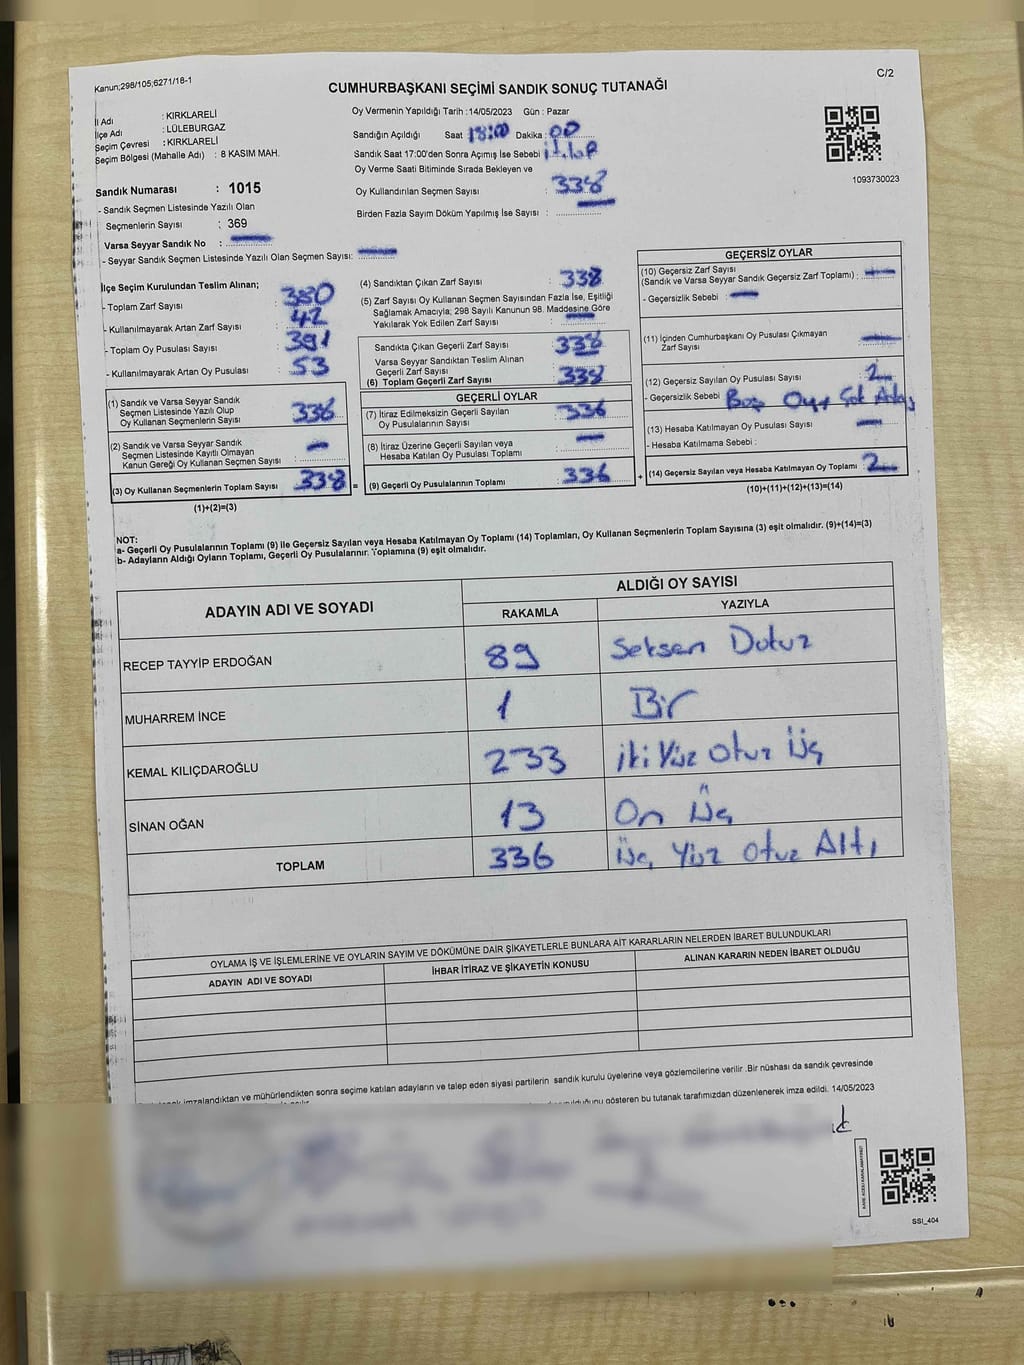 Kanun;298/105;6271/18-1
C/2
CUMHURBAŞKANI SEÇİMİ SANDIK SONUÇ TUTANAĞI
İl Adı : KIRKLARELİ
İlçe Adı : LÜLEBURGAZ
Seçim Çevresi : KIRKLARELİ
Seçim Bölgesi (Mahalle Adı) : 8 KASIM MAH.
Sandık Numarası : 1015
- Sandık Seçmen Listesinde Yazılı Olan
Seçmenlerin Sayısı : 369
Varsa Seyyar Sandık No :
- Seyyar Sandık Seçmen Listesinde Yazılı Olan Seçmen Sayısı:
Oy Vermenin Yapıldığı Tarih :14/05/2023 Gün : Pazar
Sandığın Açıldığı Saat 18:00 Dakika : 00
Sandık Saat 17:00'den Sonra Açılmış İse Sebebi
Oy Verme Saati Bitiminde Sırada Bekleyen ve
Oy Kullandırılan Seçmen Sayısı : 338
Birden Fazla Sayım Döküm Yapılmış İse Sayısı :
1093730023
İlçe Seçim Kurulundan Teslim Alınan;
- Toplam Zarf Sayısı : 380
- Kullanılmayarak Artan Zarf Sayısı : 42
- Toplam Oy Pusulası Sayısı : 391
- Kullanılmayarak Artan Oy Pusulası : 53
(1) Sandık ve Varsa Seyyar Sandık
Seçmen Listesinde Yazılı Olup
Oy Kullanan Seçmenlerin Sayısı : 338
(2) Sandık ve Varsa Seyyar Sandık
Seçmen Listesinde Kayıtlı Olmayan
Kanun Gereği Oy Kullanan Seçmen Sayısı :
(3) Oy Kullanan Seçmenlerin Toplam Sayısı : 338 =
(1)+(2)=(3)
(4) Sandıktan Çıkan Zarf Sayısı : 338
(5) Zarf Sayısı Oy Kullanan Seçmen Sayısından Fazla İse, Eşitliği
Sağlamak Amacıyla; 298 Sayılı Kanunun 98. Maddesine Göre
Yakılarak Yok Edilen Zarf Sayısı :
Sandıkta Çıkan Geçerli Zarf Sayısı : 338
Varsa Seyyar Sandıktan Teslim Alınan
Geçerli Zarf Sayısı :
(6) Toplam Geçerli Zarf Sayısı : 338
GEÇERLİ OYLAR
(7) İtiraz Edilmeksizin Geçerli Sayılan
Oy Pusulalarının Sayısı : 336
(8) İtiraz Üzerine Geçerli Sayılan veya
Hesaba Katılan Oy Pusulası Toplamı :
(9) Geçerli Oy Pusulalarının Toplamı : 336 +
GEÇERSİZ OYLAR
(10) Geçersiz Zarf Sayısı
(Sandık ve Varsa Seyyar Sandık Geçersiz Zarf Toplamı) :
- Geçersizlik Sebebi :
(11) İçinden Cumhurbaşkanı Oy Pusulası Çıkmayan
Zarf Sayısı :
(12) Geçersiz Sayılan Oy Pusulası Sayısı : 2
- Geçersizlik Sebebi : Boş Oy
(13) Hesaba Katılmayan Oy Pusulası Sayısı :
- Hesaba Katılmama Sebebi :
(14) Geçersiz Sayılan veya Hesaba Katılmayan Oy Toplamı : 2
(10)+(11)+(12)+(13)=(14)
NOT:
a- Geçerli Oy Pusulalarının Toplamı (9) ile Geçersiz Sayılan veya Hesaba Katılmayan Oy Toplamı (14) Toplamları, Oy Kullanan Seçmenlerin Toplam Sayısına (3) eşit olmalıdır. (9)+(14)=(3)
b- Adayların Aldığı Oyların Toplamı, Geçerli Oy Pusulalarının Toplamına (9) eşit olmalıdır.
ADAYIN ADI VE SOYADI
ALDIĞI OY SAYISI
RAKAMLA YAZIYLA
RECEP TAYYİP ERDOĞAN 89 Seksen Dokuz
MUHARREM İNCE 1 Bir
KEMAL KILIÇDAROĞLU 233 İki Yüz Otuz Üç
SİNAN OĞAN 13 On Üç
TOPLAM 336 Üç Yüz Otuz Altı
OYLAMA İŞ VE İŞLEMLERİNE VE OYLARIN SAYIM VE DÖKÜMÜNE DAİR ŞİKAYETLERLE BUNLARA AİT KARARLARIN NELERDEN İBARET BULUNDUKLARI
ADAYIN ADI VE SOYADI İHBAR İTİRAZ VE ŞİKAYETİN KONUSU ALINAN KARARIN NEDEN İBARET OLDUĞU
imzalandıktan ve mühürlendikten sonra seçime katılan adayların ve talep eden siyasi partilerin sandık kurulu üyelerine veya gözlemcilerine verilir .Bir nüshası da sandık çevresinde
gösteren bu tutanak tarafımızdan düzenlenerek imza edildi. 14/05/2023
SSI_404